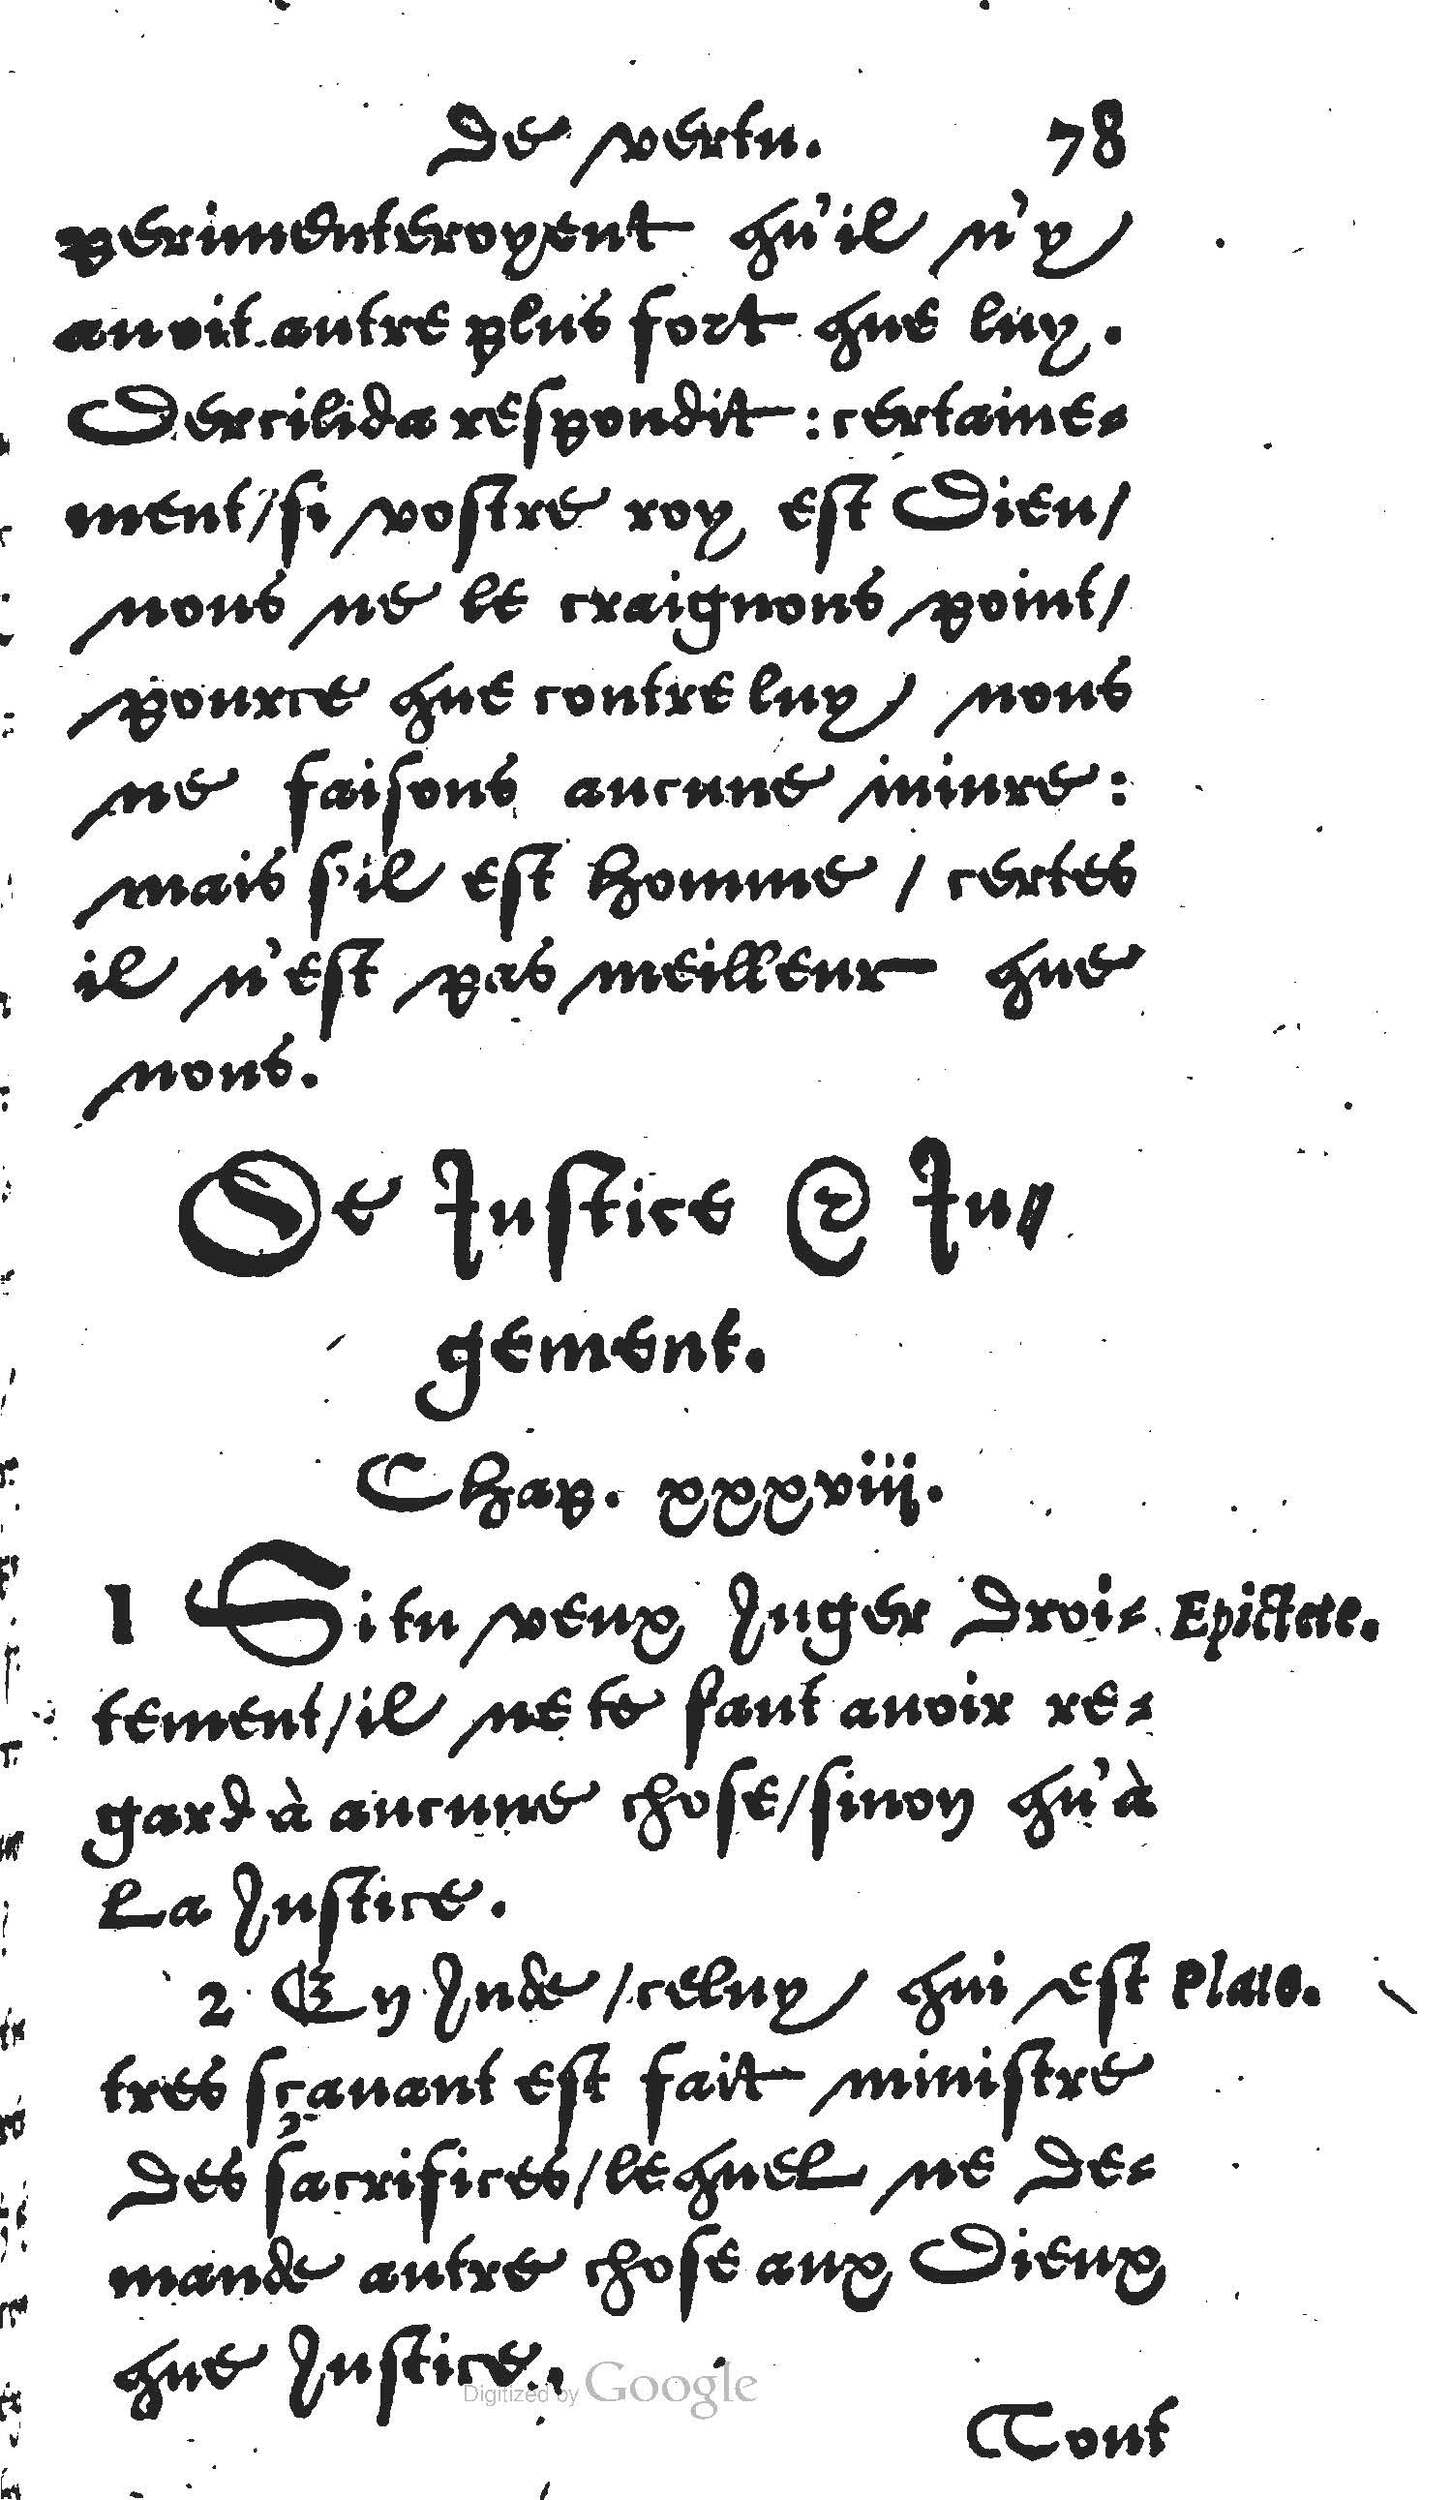 De vertu. 78
perimenteroyent qu'il n'y
auoit autre plus fort que luy.
Dercilida respondit : certaine-
ment/ si vostre roy est Dieu/
nous ne le craignons point/
pource que contre luy nous
ne faisons aucune iniure :
mais s'il est homme / certes
il n'est pas meilleur que
nous.
De Justice & Ju-
gement.
Chap. xxxviij.
1 Si tu veux Juger droi- Epictete.
tement/ il ne te faut auoir re-
gard à aucune chose/ sinon qu'à
la Justice.
2 En Inde / celuy qui est Plato.
tres sçauant est fait ministre
des sacrifices/ lequel ne de-
mande autre chose aux Dieux
que Justice.
Digitized by Google
Tout